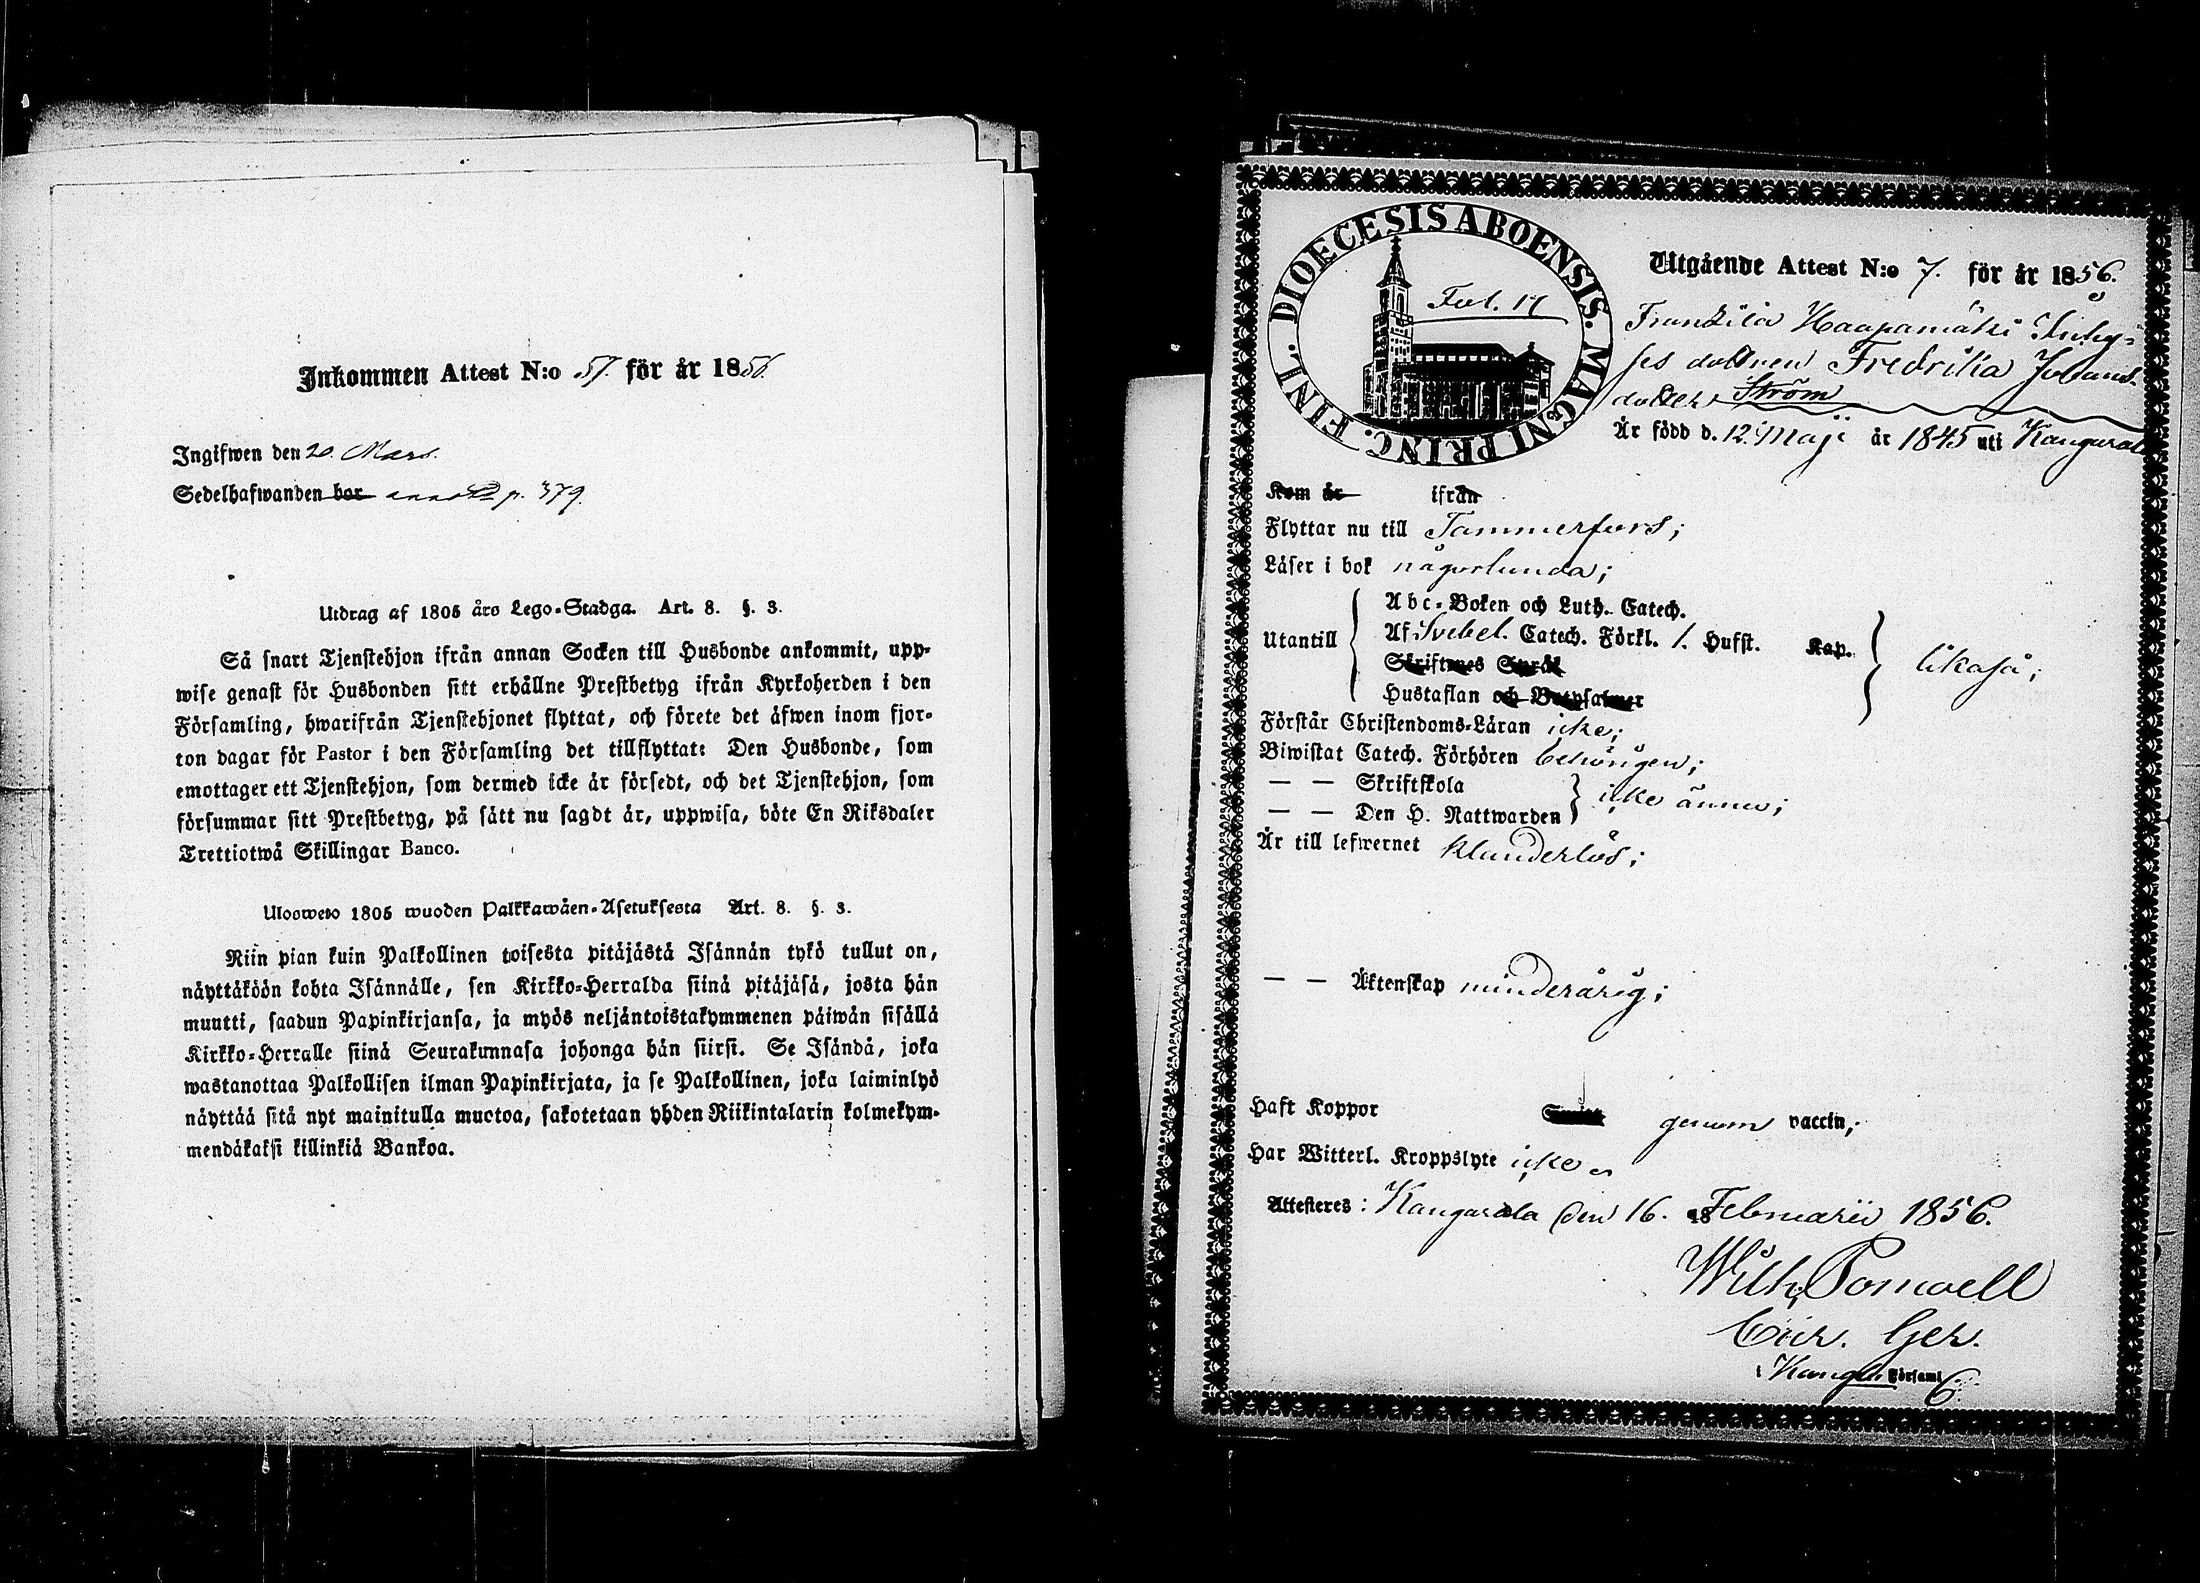 Inkommen Attest N:o 57. för år 1856.
Ingifwen den 20. Mars.
Sedelhafwanden bor annot p. 379.
Utdrag af 1805 års Lego-Stadga. Art. 8. §. 3.
Så snart Tjenstehjon ifrån annan Socken till Husbonde ankommit, upp-
wise genast för Husbonden sitt erhållne Prestbetyg ifrån Kyrkoherden i den
Församling, hwarifrån Tjenstehjonet flyttat, och förete det äfwen inom fjor-
ton dagar för Pastor i den Församling det tillflyttat: Den Husbonde, som
emottager ett Tjenstehjon, som dermed icke är försedt, och det Tjenstehjon, som
försummar sitt Prestbetyg, på sätt nu sagdt är, uppwisa, böte En Riksdaler
Trettiotwå Skillingar Banco.
Ulosweto 1805 wuoden Palkkawäen-Asetuksesta Art. 8. §. 3.
Niin pian kuin Palkollinen toisesta pitäjästä Isännän tykö tullut on,
näyttäköön kohta Isännälle, sen Kirkko-Herralda siinä pitäjäsä, josta hän
muutti, saadun Papinkirjansa, ja myös neljäntoistakymmenen päiwän sisällä
Kirkko-Herralle siinä Seurakunnasa johonga hän siirsi. Se Isändä, joka
wastanottaa Palkollisen ilman Papinkirjata, ja se Palkollinen, joka laiminlyö
näyttää sitä nyt mainitulla muotoa, sakotetaan yhden Riikintalarin kolmekym-
mendäkaksi killinkiä Bankoa.
DIOECESIS ABOENSIS. MAGNI PRINC. FINL.
Fol. 17
Utgående Attest N:o 7. för år 1856.
Frankila Haapamäki Inhy-
ses dottren Fredrika Johans-
dotter Ström
Är född d. 12 Maji år 1845 uti Kangasala
Kom år ifrån
Flyttar nu till Tammerfors;
Läser i bok någorlunda;
Utantill
Abc-Boken och Luth. Catech.
Af Svebel. Catech. Förkl. 1. Hufst. Kap.
Skriftenes Språk
Hustaflan och Botpsalmer
likaså;
Förstår Christendoms-Läran icke;
Biwistat Catech. Förhören behörigen;
— — Skriftskola
— — Den H. Nattwarden
icke ännu;
Är till lefwernet klanderlös;
— — Äktenskap minderårig;
Haft Koppor genom vaccin;
Har Witterl. Kroppslyte icke
Attesteres: Kangasala den 16. 18 Februarii 1856.
Wilh. Pomoell
Cur. Ger.
i Kangla Församl